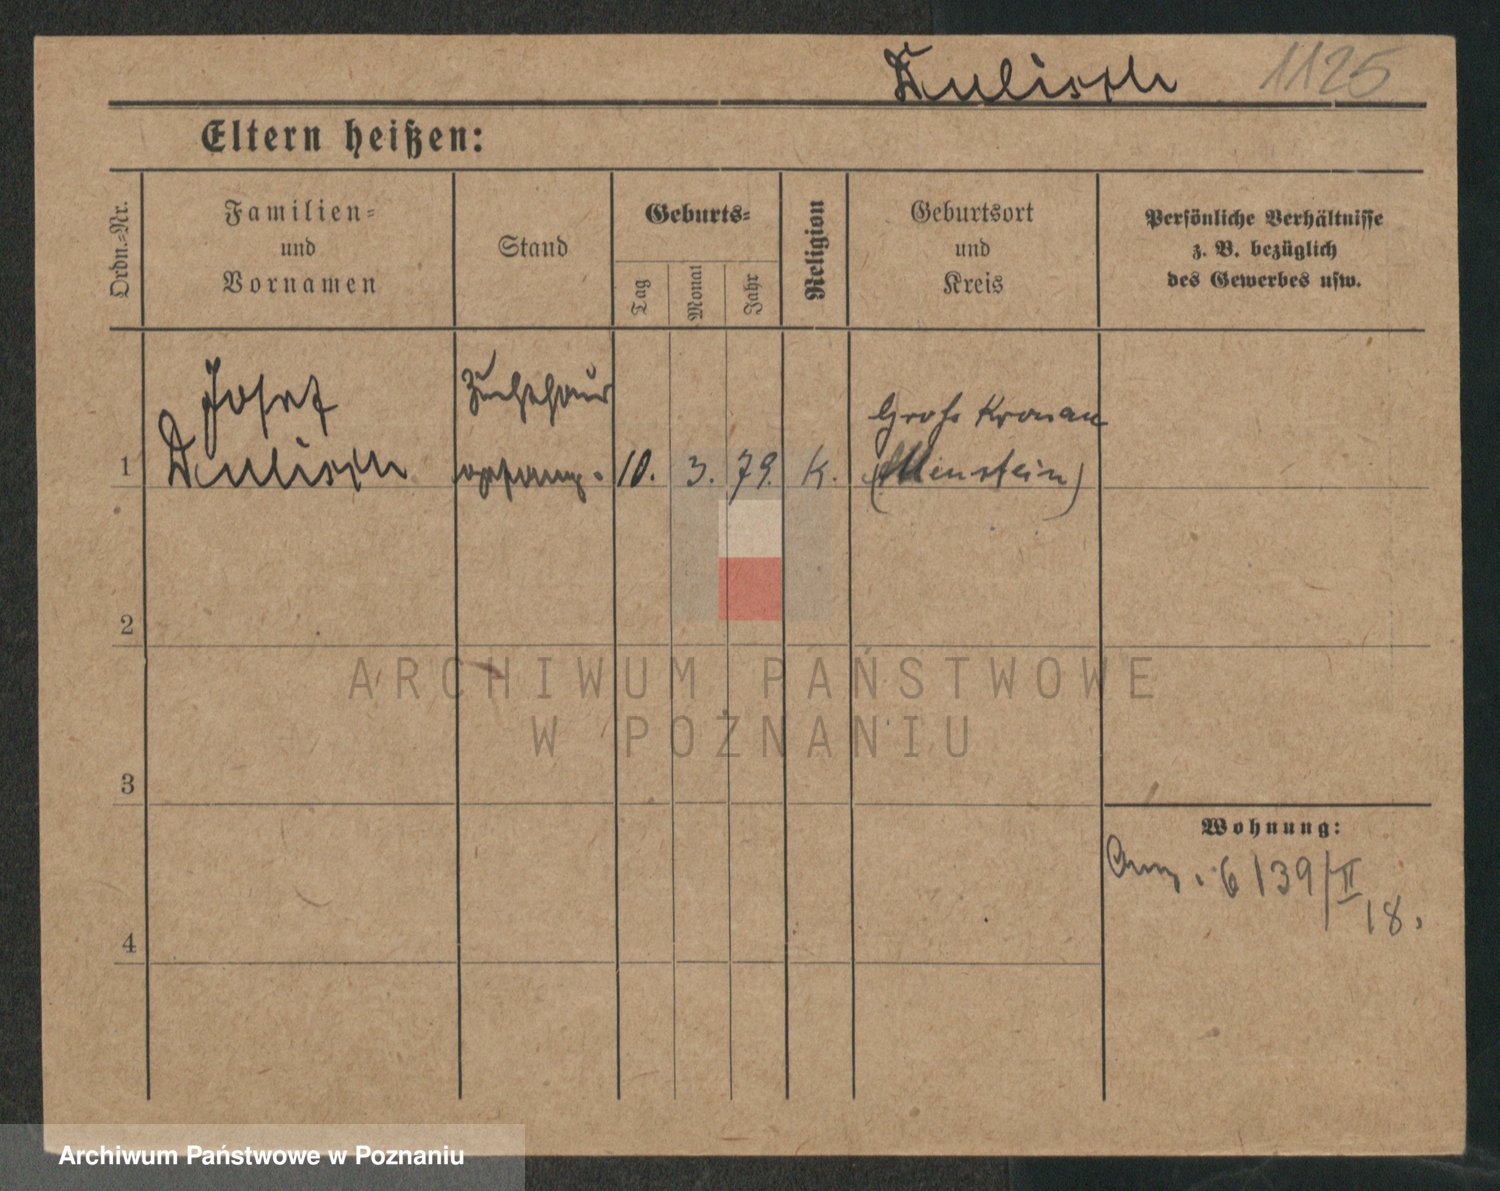 1125
Eltern heißen:
Ordn.-Nr.
Familien-
und
Vornamen
Stand
Geburts-
Tag
Monat
Jahr
Religion
Geburtsort
und
Kreis
Persönliche Verhältnisse
z. B. bezüglich
des Gewerbes usw.
Josef
Zuchthaus
gefang.
1
10. 3. 79. K.
Groß Kronau
(Allenstein)
2
3
4
Wohnung:
6/39/II
18.
ARCHIWUM PAŃSTWOWE
W POZNANIU
Archiwum Państwowe w Poznaniu